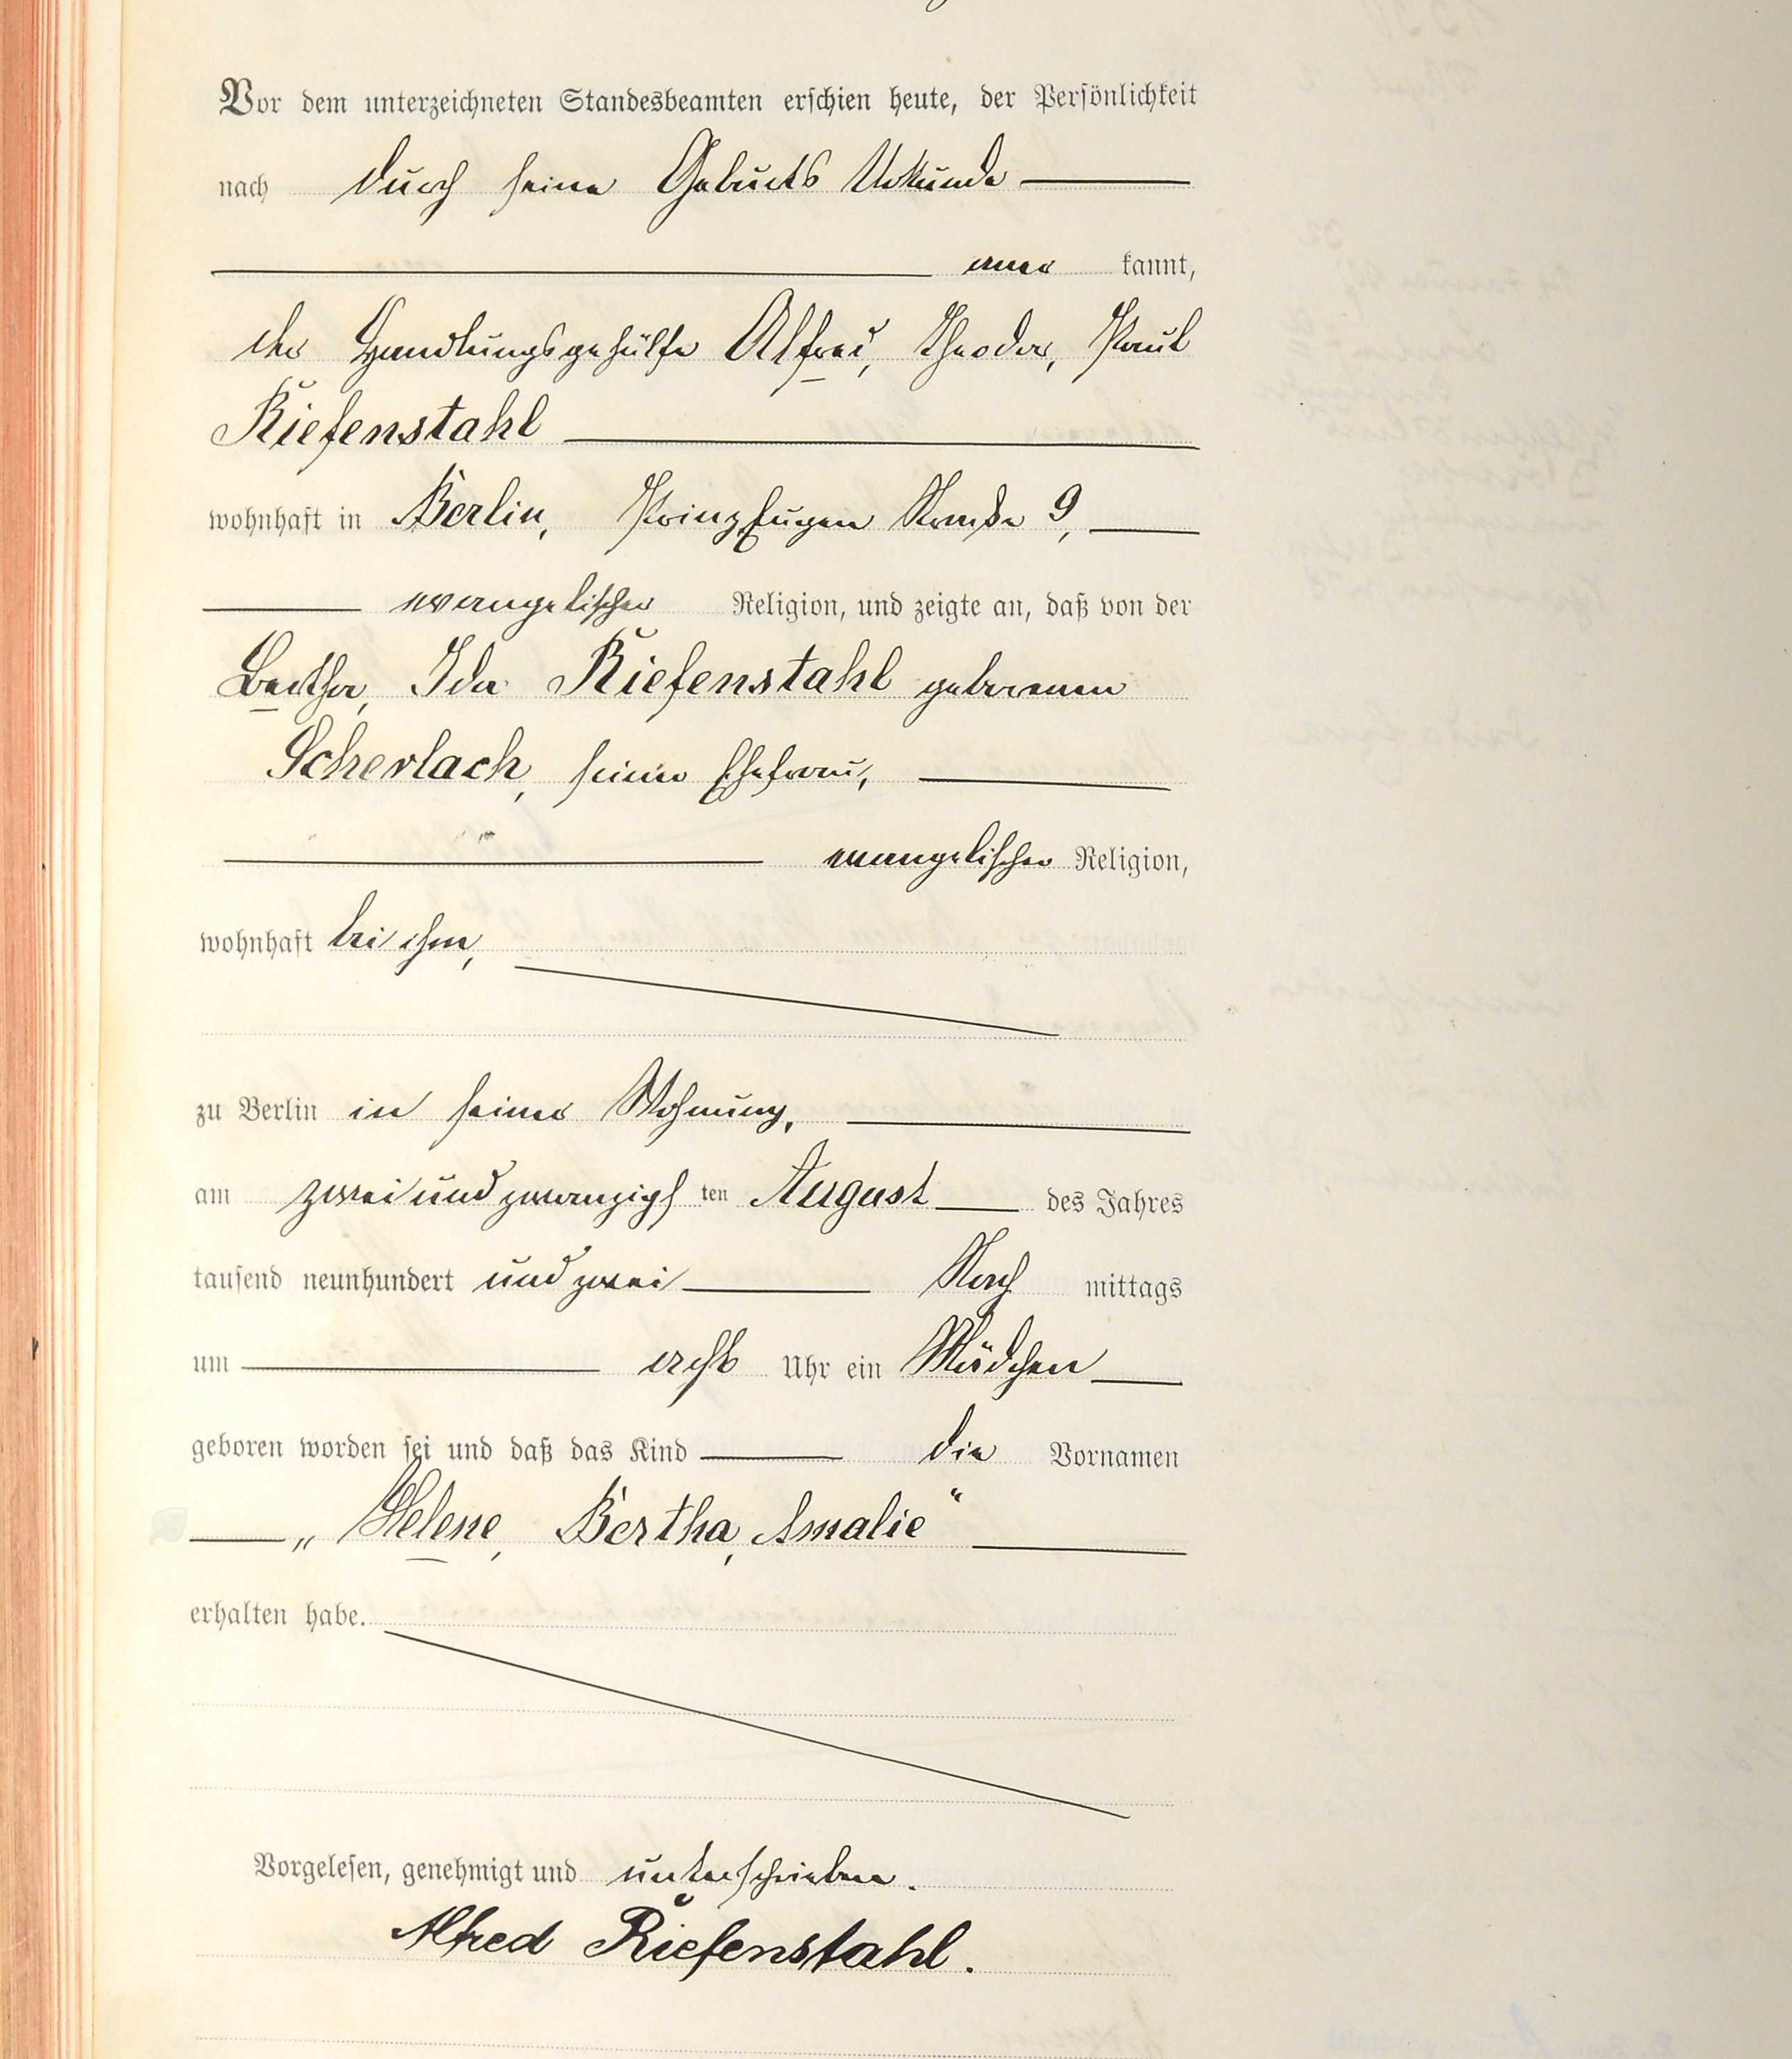 Vor dem unterzeichneten Standesbeamten erschien heute, der Persönlichkeit
nach durch seine Geburts Urkunde
aner kannt,
der Handlungsgehülfe Alfred, Theodor, Paul
Riefenstahl
wohnhaft in Berlin, Prinz Eugen Straße 9,
evangelischer Religion, und zeigte an, daß von der
Bertha, Ida Riefenstahl geborenen
Scherlach, seiner Ehefrau,
evangelischer Religion,
wohnhaft bei ihm,
zu Berlin in seiner Wohnung,
am zwei und zwanzigs ten August des Jahres
tausend neunhundert und zwei Nach mittags
um acht Uhr ein Mädchen
geboren worden sei und daß das Kind die Vornamen
„Helene, Bertha, Amalie“
erhalten habe.
Vorgelesen, genehmigt und unterschrieben.
Alfred Riefenstahl.